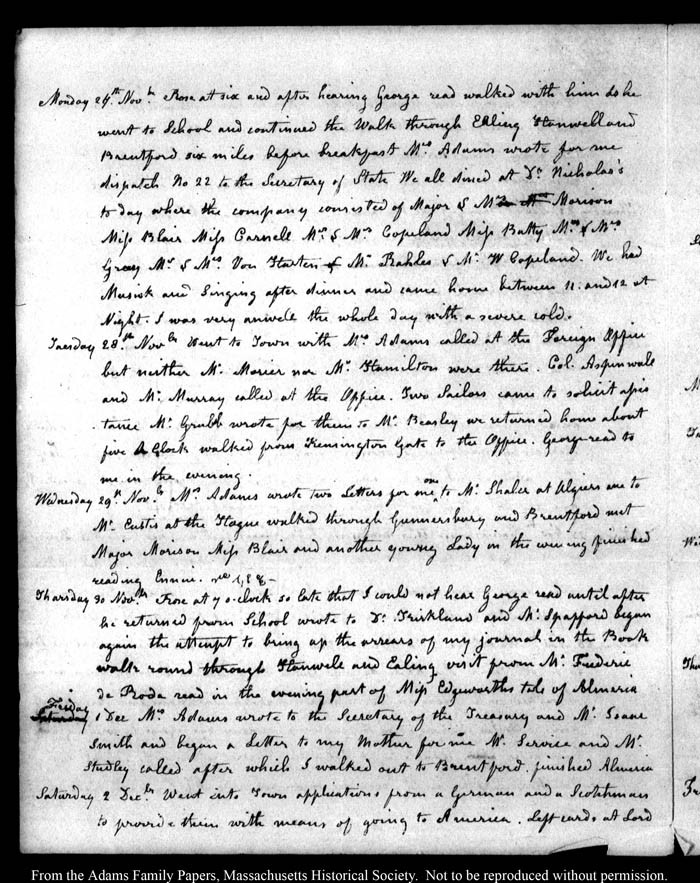 Monday 27th Novbr. Rose at six and after hearing George read walked with him as he
went to School and continued the Walk through Ealing Hanwell and
Brentford six miles before breakfast Mrs Adams wrote for me
dispatch No 22 to the Secretary of State We all dined at Dr Nicholas's
to day where the company consisted of Major & Mrs Morison
Miss Blair Miss Carnell Mr. & Mrs Copeland Miss Batty Mr. & Mrs
Gray Mr & Mrs Von Harten & Mr Rahles & Mr. W Copeland. We had
Musick and Singing after dinner and came home between 11 and 12 at
Night. I was very unwell the whole day with a severe cold.
Tuesday 28th Novbr Went to Town with Mrs Adams called at the Foreign Office
but neither Mr. Morier nor Mr Hamilton were there. Col. Aspinwall
and Mr Murray called at the Office. Two Sailors came to solicit assis
tance Mr Grubb wrote for them to Mr. Beasley we returned home about
five O Clock walked from Kensington Gate to the Office. George read to
me in the evening.
Wednesday 29th Novbr Mrs Adams wrote two Letters for me one to Mr. Shaler at Algiers one to
Mr. Eustis at the Hague walked through Gunnersbury and Brentford met
Major Morison Miss Blair and another young Lady in the evening finished
reading
Thursday 30 Novbr Rose at 7 o-clock so late that I could not hear George read until after
he returned from School wrote to Dr. Trickland and Mr. Spafford began
again the attempt to bring up the arrears of my journal in the Book
walk round through Hanwell and Ealing visit from Mr. Frederic
de Roda read in the evening part of Miss Edgeworths tale of Almeria
Friday
Saturday 1 Dec Mrs Adams wrote to the Secretary of the Treasury and Mr. Isaac
Smith and began a Letter to my Mother for me Mr. Service and Mr.
Studley called after which I walked out to Brentford. finished Almeria
Saturday 2 Decbr Went into Town applications from a German and a Scotchman
to provide them with means of going to America. Left cards at Lord
From the Adams Family Papers, Massachusetts Historical Society. Not to be reproduced without permission.